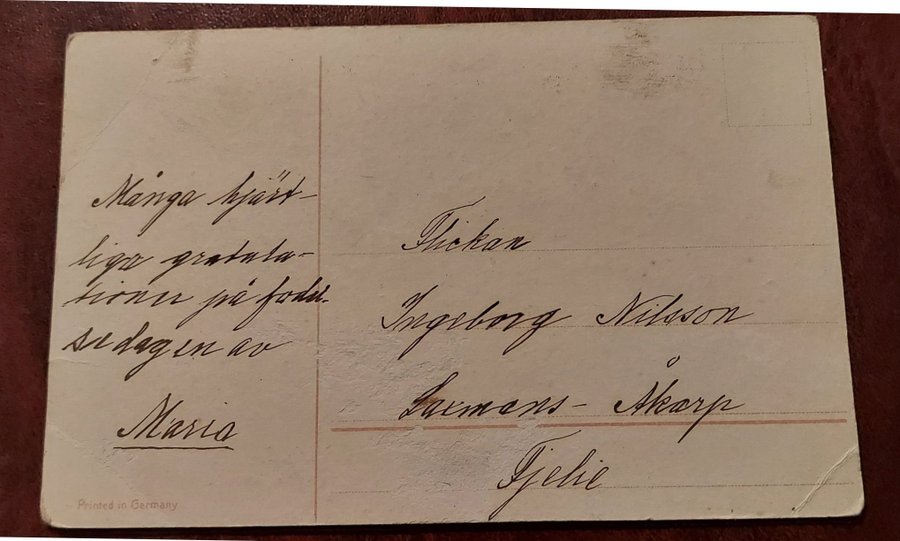 Många hjärt-
liga gratula-
tioner på födel-
sedagen av
Maria
Printed in Germany
Flickan
Ingeborg Nilsson
Laxmans-Åkarp
Fjelie